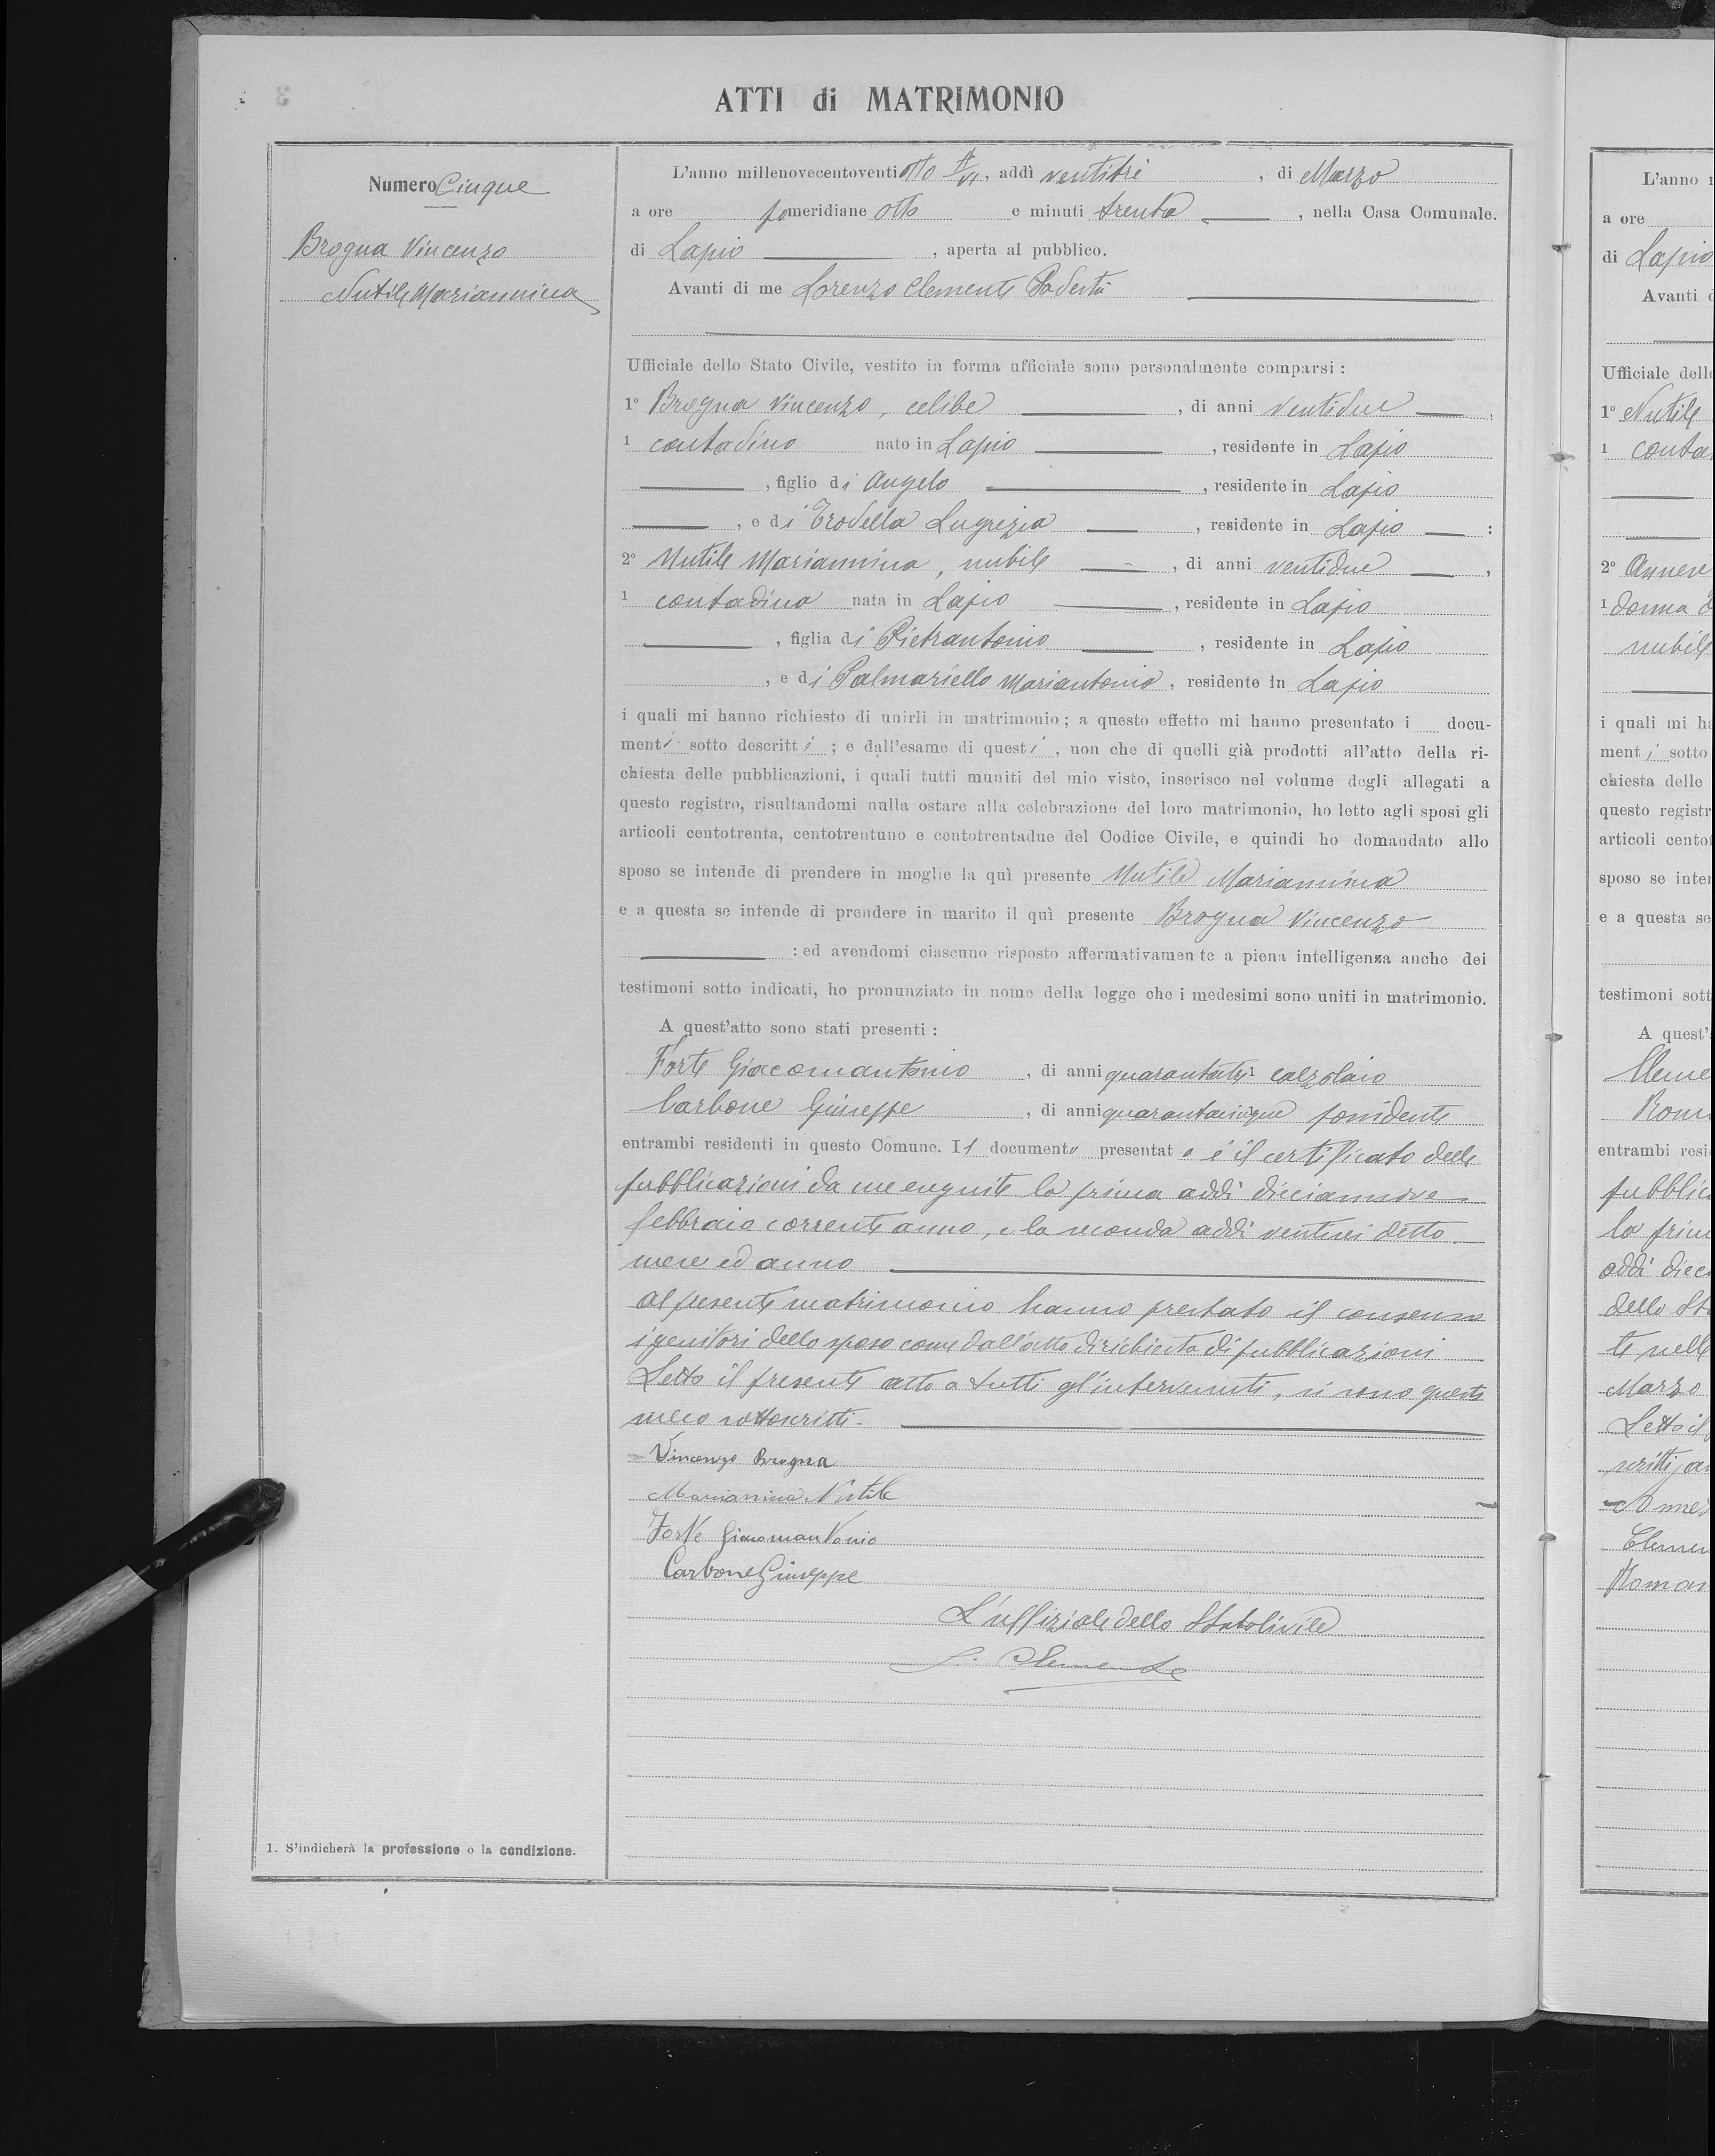 ATTI di MATRIMONIO
Numero Cinque
Brogna Vincenzo
Nutile Mariannina
L'anno millenovecentoventi otto A/VI, addì ventitrè, di Marzo
a ore pomeridiane otto e minuti trenta, nella Casa Comunale.
di Lapio, aperta al pubblico.
Avanti di me Lorenzo Clemente Podestà
Ufficiale dello Stato Civile, vestito in forma ufficiale sono personalmente comparsi:
1º Brogna Vincenzo, celibe, di anni ventidue,
1 contadino nato in Lapio, residente in Lapio
, figlio di Angelo, residente in Lapio
, e di Trodella Lugrezia, residente in Lapio :
2º Nutile Mariannina, nubile, di anni ventidue,
1 contadina nata in Lapio, residente in Lapio
, figlia di Pietrantonio, residente in Lapio
, e di Palmariello Mariantonia, residente in Lapio
i quali mi hanno richiesto di unirli in matrimonio; a questo effetto mi hanno presentato i docu-
menti sotto descritti; e dall'esame di questi, non che di quelli già prodotti all'atto della ri-
chiesta delle pubblicazioni, i quali tutti muniti del mio visto, inserisco nel volume degli allegati a
questo registro, risultandomi nulla ostare alla celebrazione del loro matrimonio, ho letto agli sposi gli
articoli centotrenta, centotrentuno e centotrentadue del Codice Civile, e quindi ho domandato allo
sposo se intende di prendere in moglie la quì presente Nutile Mariannina
e a questa se intende di prendere in marito il quì presente Brogna Vincenzo
: ed avendomi ciascuno risposto affermativamente a piena intelligenza anche dei
testimoni sotto indicati, ho pronunziato in nome della legge che i medesimi sono uniti in matrimonio.
A quest'atto sono stati presenti:
Forte Giacomantonio, di anni quarantatrè calzolaio
Carbone Giuseppe, di anni quarantacinque possidente
entrambi residenti in questo Comune. Il documento presentato è il certificato delle
pubblicazioni da me eseguite la prima addì diciannove
febbraio corrente anno, e la seconda addì ventisei detto
mese ed anno
Al presente matrimonio hanno prestato il consenso
i genitori dello sposo come dall'atto di richiesta di pubblicazioni
Letto il presente atto a tutti gl'intervenuti, si sono questi
meco sottoscritti.
Vincenzo Brogna
Mariannina Nutile
Forte Giacomantonio
Carbone Giuseppe
L'uffiziale dello Stato Civile
L. Clemente
1. S'indicherà la professione o la condizione.
L'anno
a ore
di Lapio
Avanti
Ufficiale dell
1º Nutile
1 conta
2º
1 donna
nubile
i quali mi h
menti sotto
chiesta delle
questo registr
articoli cento
sposo se inte
e a questa se
testimoni sott
A quest'
Cleme
entrambi resi
pubblic
la prim
addì
dello St
te nelle
Marzo
Letto il
Clemen